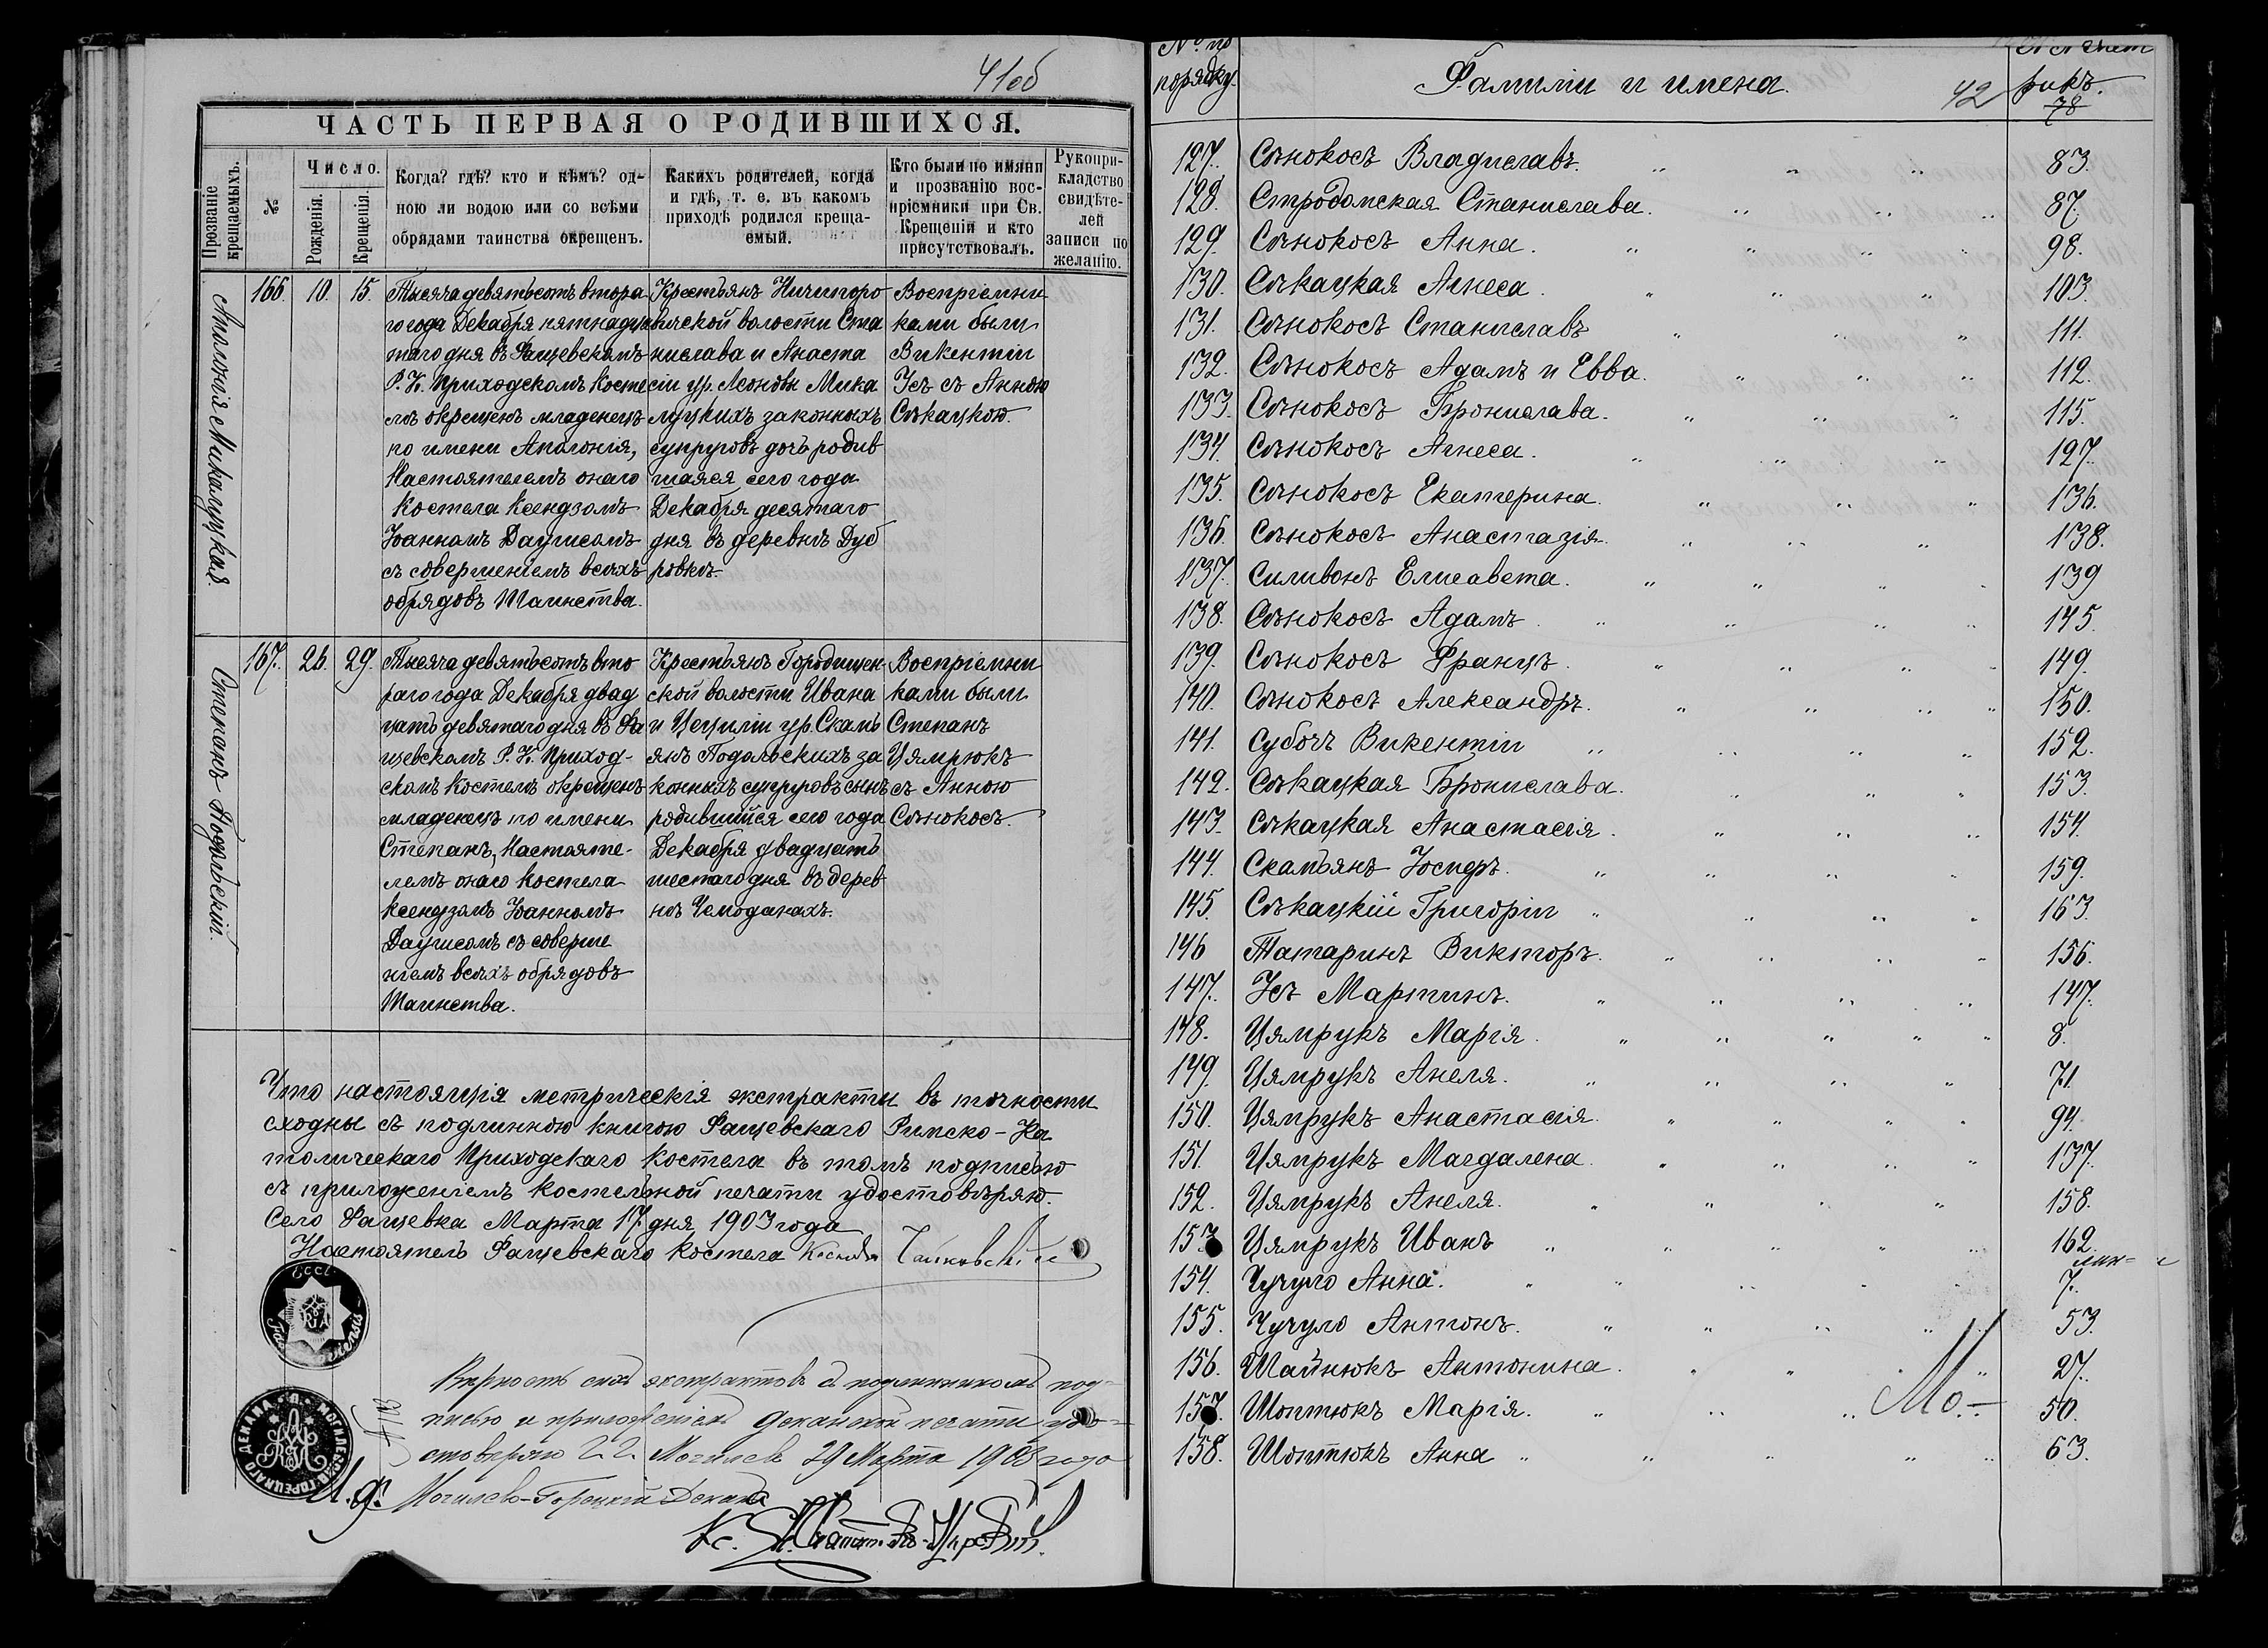 41об
ЧАСТЬ ПЕРВАЯ О РОДИВШИХСЯ.
Прозваніе крещаемыхъ.
№
Число.
Рожденія.
Крещенія.
Когда? гдѣ? кто и кѣмъ? од-
ною ли водою или со всѣми
обрядами таинства окрещенъ.
Какихъ родителей, когда
и гдѣ, т. е. въ какомъ
приходѣ родился креща-
емый.
Кто были по имяни
и прозванію вос-
пріемники при Св.
Крещеніи и кто
присутствовалъ.
Рукопри-
кладство
свидѣте-
лей
записи по
желанію.
Аполонія Микалуцкая
166. 10. 15.
Тысяча девятьсотъ второ
го года Декабря пятнадца
таго дня въ Фащевскомъ
Р. К. Приходскомъ косте
лѣ окрещенъ младенецъ
по имени Аполонія,
Настоятелемъ онаго
костела Ксендзомъ
Іоанномъ Даугисомъ
съ совершеніемъ всѣхъ
обрядовъ Таинства.
Крестьянъ Ничипоро
вичской волости Ста
нислава и Анаста
сіи ур. Леоновы Мика
луцкихъ законныхъ
супруговъ дочь родив
шаяся сего года
Декабря десятаго
дня въ деревнѣ Дуб
ровкѣ.
Воспріемни
ками были
Викентіи
Усъ съ Анною
Сѣкацкою.
Степанъ Подольскій.
167. 26. 29.
Тысяча девятьсотъ вто
раго года Декабря двад
цать девятаго дня въ Фа
щевскомъ Р. К. Приход-
скомъ костелѣ окрещенъ
младенецъ по имени
Степанъ, Настояте-
лемъ онаго костела
ксендзомъ Іоанномъ
Даугисомъ съ соверше
ніемъ всѣхъ обрядовъ
Таинства.
Крестьянъ Городищен
ской волости Ивана
и Цециліи ур. Скамь
янъ Подольскихъ за
конныхъ супруговъ сынъ
родившійся сего года
Декабря двадцать
шестаго дня въ дерев
нѣ Чемоданахъ.
Воспріемни
ками были
Степанъ
Цямрюкъ
съ Анною
Сѣнокосъ.
Что настоящія метрическія экстракты въ точности
сходны съ подлинною книгою Фащевскаго Римско-Ка
толическаго Приходскаго костела въ томъ подписью
съ приложеніемъ костельной печати удостовѣряю.
Село Фащевка Марта 17 дня 1903 года
Настоятель Фащевскаго костела Ксендзъ
Вѣрность сихъ экстрактовъ съ подлинникомъ под-
писью и приложеніемъ деканской печати удо-
стовѣряю г. Могилевъ 29 Марта 1903 года
И. д. Могилево-Горецкій Деканъ
Кс.
№ по
порядку.
Фамиліи и имена.
42
№№ мет
рикъ.
78
127. Сѣнокосъ Владиславъ. 83.
128. Стродомская Станислава. 87.
129. Сѣнокосъ Анна. 98.
130. Сѣкацкая Агнеса. 103.
131. Сѣнокосъ Станиславъ 111.
132. Сѣнокосъ Адамъ и Евва. 112.
133. Сѣнокосъ Бронислава. 115.
134. Сѣнокосъ Агнеса. 127.
135. Сѣнокосъ Екатерина. 136.
136. Сѣнокосъ Анастазія. 138.
137. Силивонъ Елисавета. 139
138. Сѣнокосъ Адамъ. 145.
139. Сѣнокосъ Францъ. 149.
140. Сѣнокосъ Александръ. 150.
141. Субочъ Викентіи 152.
142. Сѣкацкая Бронислава. 153.
143. Сѣкацкая Анастасія. 154.
144. Скамьянъ Іосифъ. 159.
145. Сѣкацкій Григоріи 163.
146 Татаринъ Викторъ. 156.
147. Усъ Мартинъ. 147.
148. Цямрукъ Марія. 8.
149. Цямрукъ Анеля. 71.
150. Цямрукъ Анастасія. 94.
151. Цямрукъ Магдалена. 137.
152. Цямрукъ Анеля. 158.
153. Цямрукъ Иванъ 162.
154. Чучуло Анна. 7.
155. Чучуло Антонъ. 53.
156. Шайнюкъ Антонина. 27.
157. Шоптюкъ Марія. 50.
158. Шоптюкъ Анна 63.